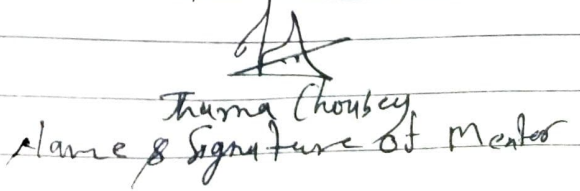 Thuma Choubey
Name & Signature of Mentor